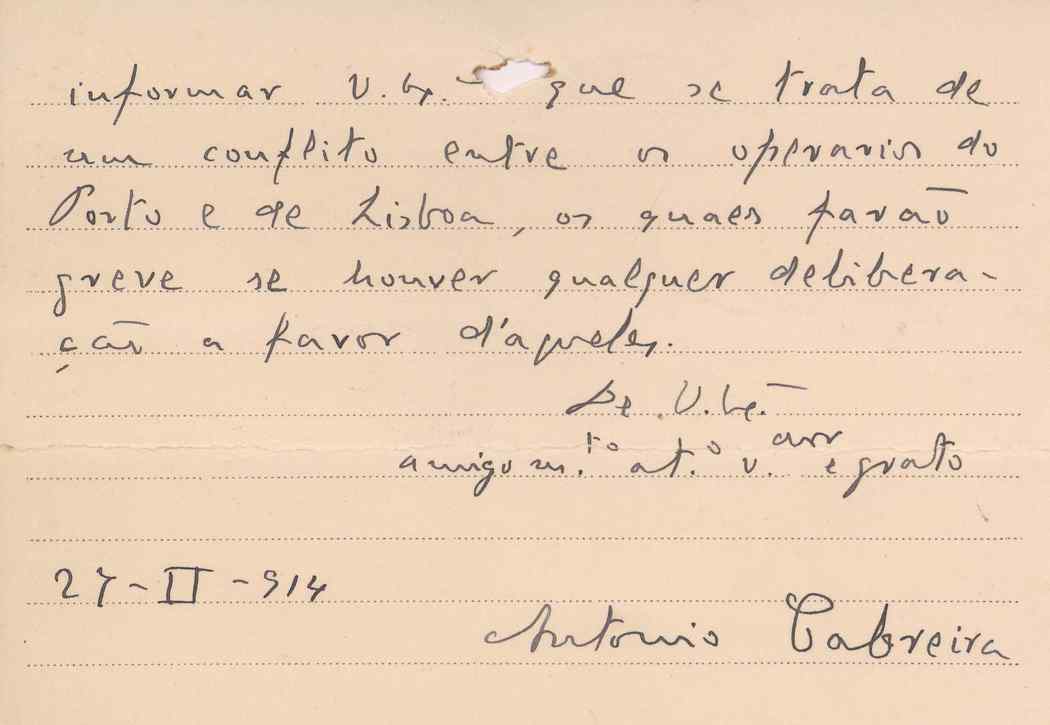 informar V. Ex.ª que se trata de
um conflito entre os operarios do
Porto e de Lisboa, os quaes farão
greve se houver qualquer delibera-
ção a favor d'aqueles.
De V. Ex.ª
amigo m.to at.o v.or e grato
27-II-914
Antonio Cabreira